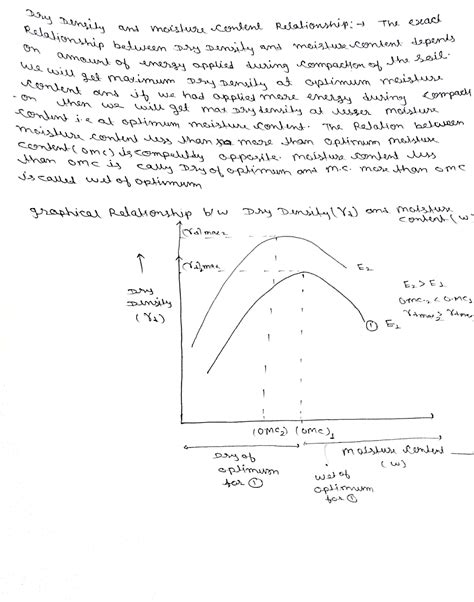 Dry Density and moisture content Relationship:→ The exact
Relationship between Dry Density and moisture content depends
on amount of energy applied during compaction of the soil.
We will get maximum Dry Density at optimum moisture
content and if we had applied more energy during compacti
on then we will get max Dry density at lesser moisture
content i.e at optimum moisture content. The Relation between
moisture content less than more than optimum moisture
content (omc) is completly opposite. moisture content less
than omc is cally Dry of optimum and m.c. more than omc
is called wet of optimum
graphical Relationship b/w Dry Density (γd) and moisture
content (w
(γd)max2
(γd)max
E2
↑
Dry
Density
(γd)
E2 > E1
omc2 < omc1
γdmax2 > γdmax
① E1
(OMC2) (OMC)1
Dry of
optimum
for ①
moisture content
(w)
wet of
optimum
for ①